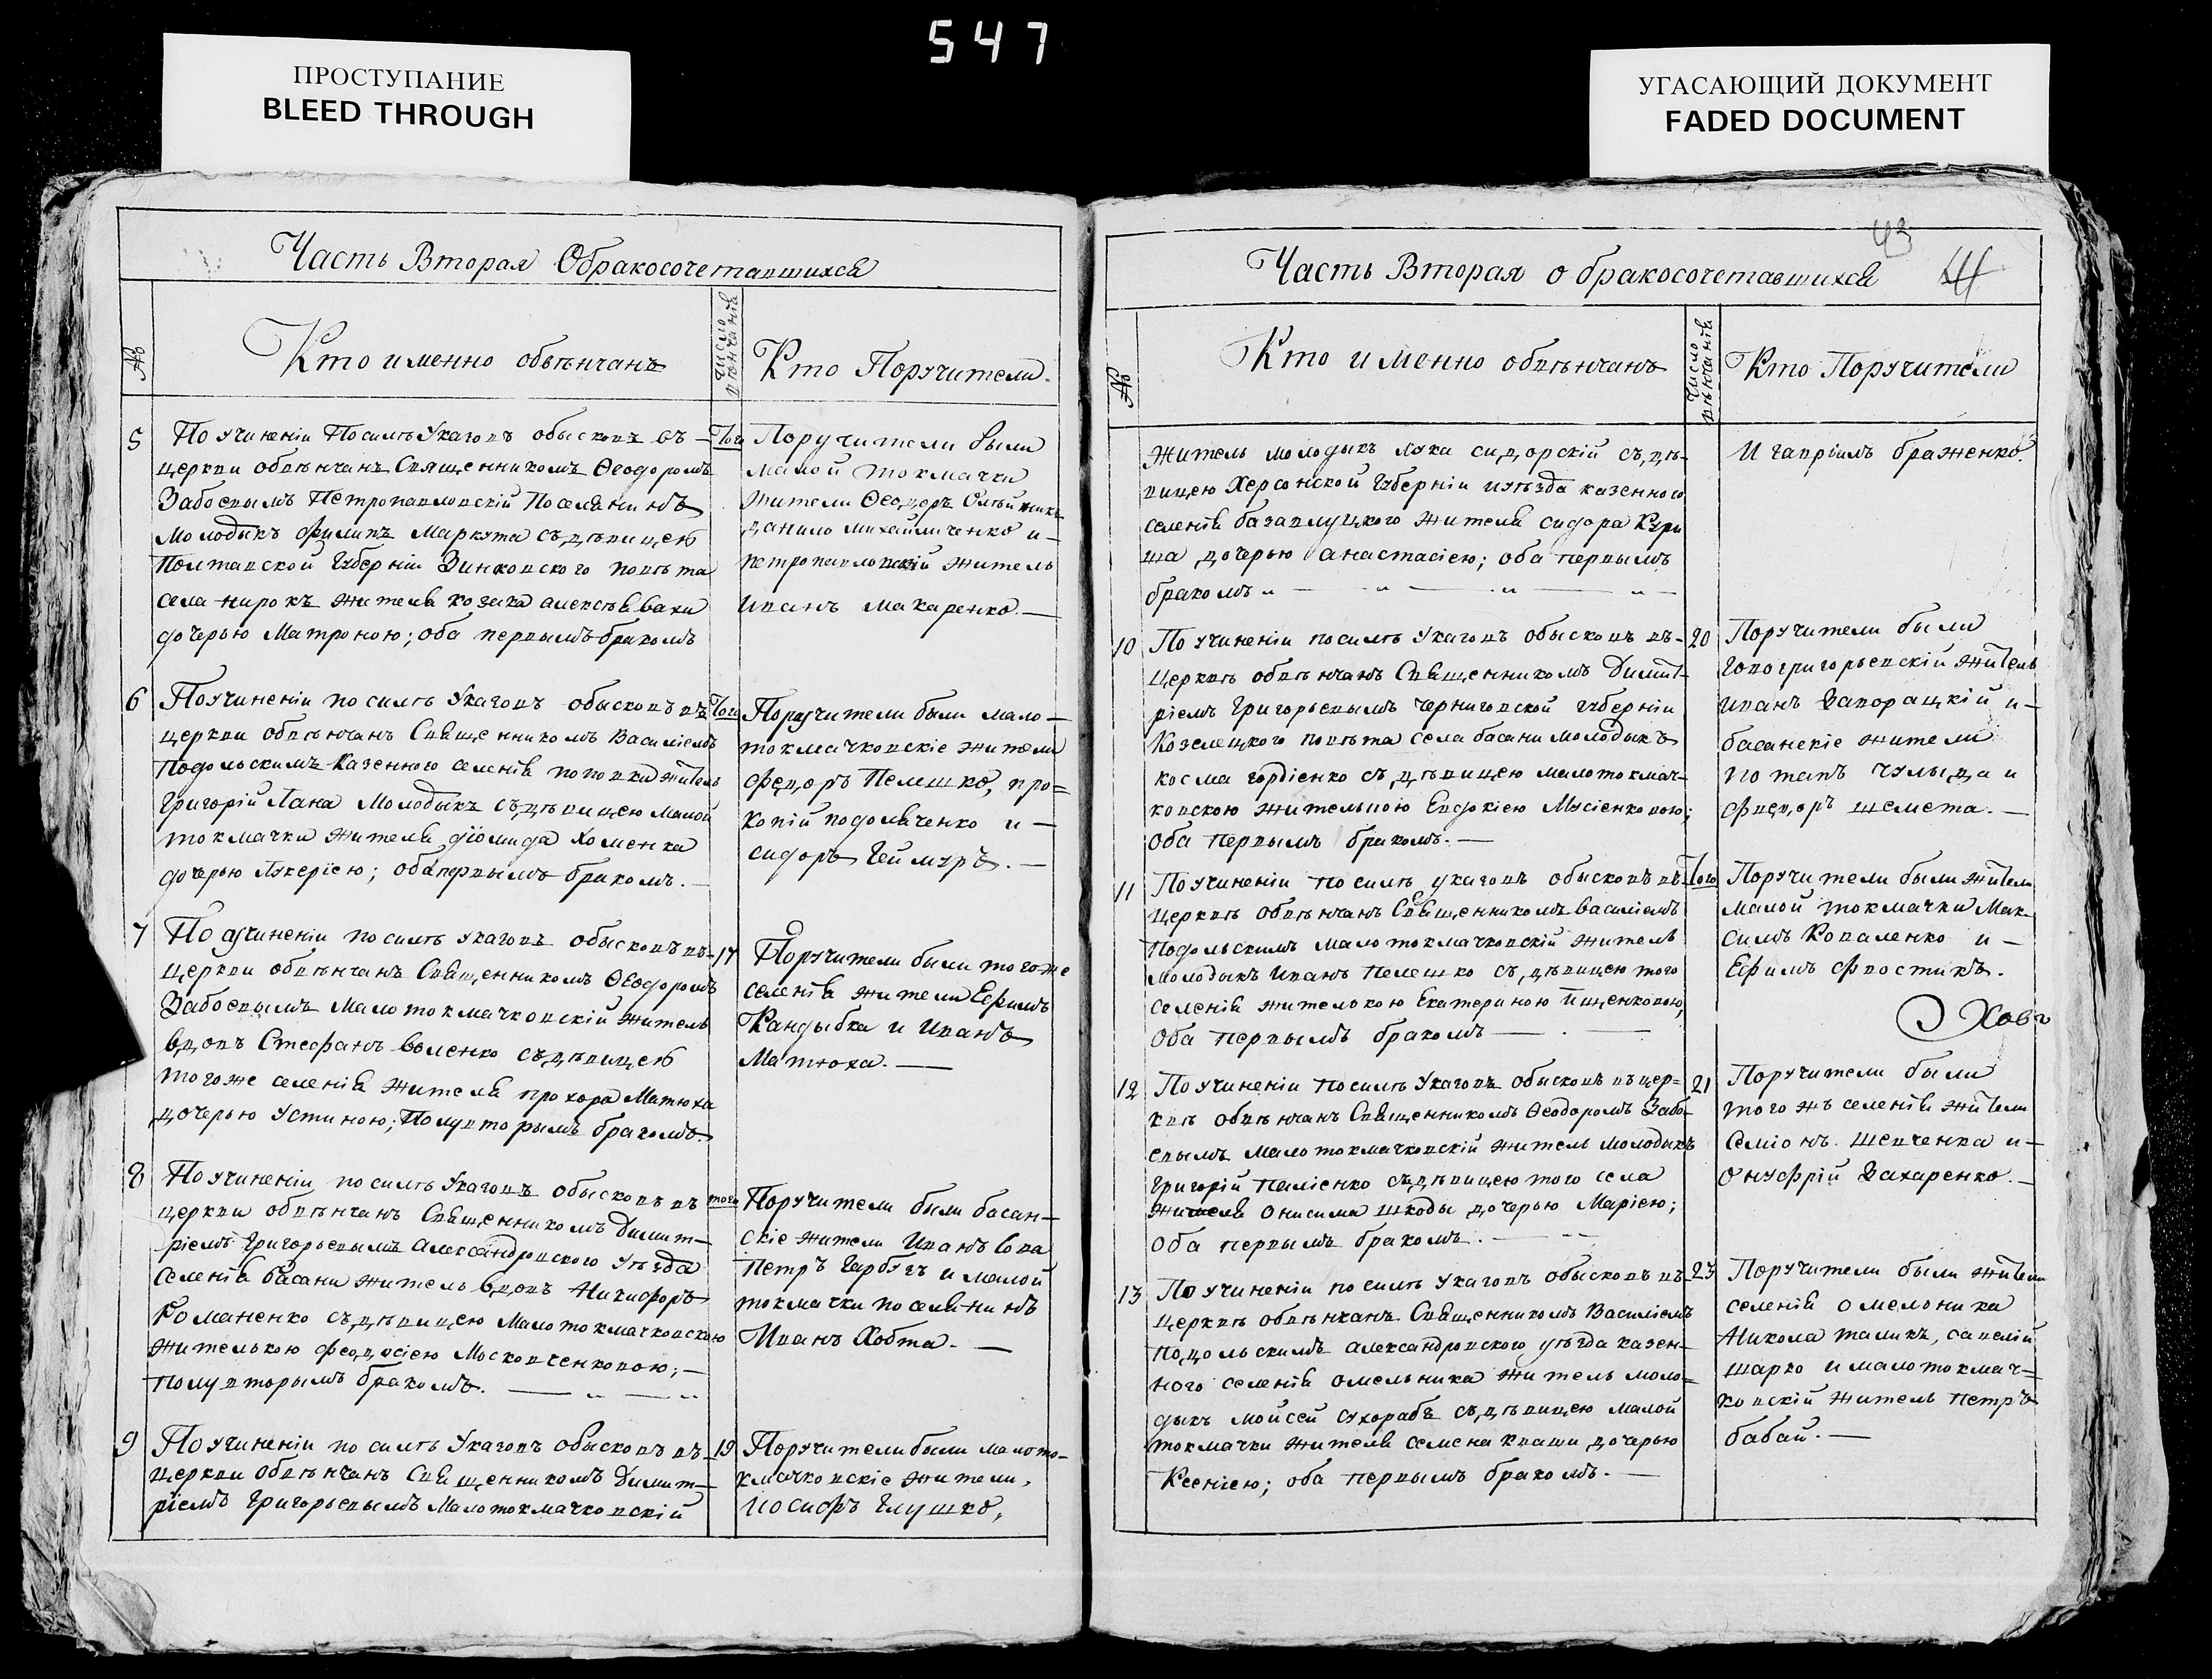 547
ПРОСТУПАНИЕ
BLEED THROUGH
УГАСАЮЩИЙ ДОКУМЕНТ
FADED DOCUMENT
Часть Вторая Обракосочетавшихся
№
Кто именно обвѣнчанъ
Число вѣнчанія
Кто Поручители
5
По учиненіи По силѣ Указовъ обысковъ въ
церкви обвѣнчанъ Священникомъ Ѳеодоромъ
Забоевымъ Петропавловскій Поселянинъ
Молодыкъ Филипъ Маркута съ дѣвицею
Полтавской Губерніи Зинковского повѣта
села жителя козака алексѣя
дочерью Матроною; оба первымъ бракомъ
Того
Поручители были
Малой токмачки
жители Ѳеодоръ Олѣйникъ
данило михайличенко и
петропавловскій житель
иванъ макаренко.
6
По учиненіи по силѣ Указовъ обысковъ въ
церкви обвѣнчанъ Священникомъ Василіемъ
Подольскимъ Казенного селенія поповки житель
григорій Лапа Молодыкъ съ дѣвицею Малой
токмачки жителя діомида хоменка
дочерью Лукеріею; оба первымъ бракомъ.
Того
Поручители были мало
токмачковскіе жители
федоръ Пелешко, про=
копій подольченко и
сидоръ Геймуръ.
7
По учиненіи по силѣ указовъ обысковъ въ
церкви обвѣнчанъ Священникомъ Ѳеодоромъ
Забоевымъ Малотокмачковскій житель
вдовъ Стефанъ воленко съ дѣвицею
того же селенія жителя прохора Матюхи
дочерью Устиною; Полувторымъ бракомъ.
17
Поручители были того же
селенія жители Ефимъ
Кандыбка и Иванъ
Матюха.
8
По учиненіи по силѣ Указовъ обысковъ въ
церкви обвѣнчанъ Священникомъ Димит-
ріемъ Григорьевымъ Александровского уѣзда
Селенія басани житель вдовъ Никифоръ
Романенко съ дѣвицею Малотокмачковскою
жителькою феодосіею Московченковою;
полувторымъ бракомъ.
того
Поручители были басан-
скіе жители Иванъ Сова
Петръ Гарбузъ и малой
токмачки поселянинъ
Иванъ Ковта.
9
По учиненіи по силѣ Указовъ обысковъ въ
церкви обвѣнчанъ Священникомъ Димит-
ріемъ Григорьевымъ Малотокмачковскій
19
Поручители были малото-
кмачковскіе жители,
иосифъ Глушко,
43
Часть Вторая о бракосочетавшихся
№
Кто именно обвѣнчанъ
Число вѣнчанія
Кто Поручители
житель молодыкъ лука сидорскій съ дѣ-
вицею Херсонской Губерніи уѣзда казенного
селенія базавлуцкого жителя сидора
дочерью анастасіею; оба первымъ
бракомъ
И гавріилъ браженко.
10
По учиненіи по силѣ Указовъ обысковъ въ
церквѣ обвѣнчанъ Священникомъ Димит-
ріемъ Григорьевымъ черниговской губерніи
Козелецкого повѣта села басани молодыкъ
косма гордіенко съ дѣвицею малотокмач-
ковскою жителькою Евдокіею Мусіенковою;
оба первымъ бракомъ.
20
Поручители были
Новогригорьевскій житель
иванъ Запорацкій и
басанскіе жители
потапъ чулыда и
федоръ шемета.
11
По учиненіи по силѣ указовъ обысковъ въ
церквѣ обвѣнчанъ Священникомъ василіемъ
Подольскимъ малотокмачковскій житель
молодыкъ Иванъ Пелешко съ дѣвицею того
селенія жителькою Екатериною Ищенковою,
оба первымъ бракомъ
Того
Поручители были жители
малой токмачки Мак-
симъ Коваленко и
Ефимъ феостикъ.
12
По учиненіи по силѣ Указовъ обысковъ въ цер=
квѣ обвѣнчанъ Священникомъ Ѳеодоромъ Забо-
евымъ Малотокмачковскій житель молодыкъ
григорій палієнко съ дѣвицею того села
жителя онисима шкоды дочерью Маріею;
оба первымъ бракомъ.
21
Поручители были
того жъ селенія жители
Семіонъ шевченка и
онуфрій Захаренко.
13
По учиненіи по силѣ Указовъ обысковъ въ
церквѣ обвѣнчанъ Священникомъ Василіемъ
подольскимъ александровского уѣзда казен-
ного селенія омельника житель моло=
дыкъ мойсей сухорабъ съ дѣвицею малой
токмачки жителя семена кваши дочерью
Ксеніею; оба первымъ бракомъ.
23
Поручители были жители
селенія омелоника
Никола таликъ, савелій
шарко и малотокмач=
ковскій житель петръ
бабай.